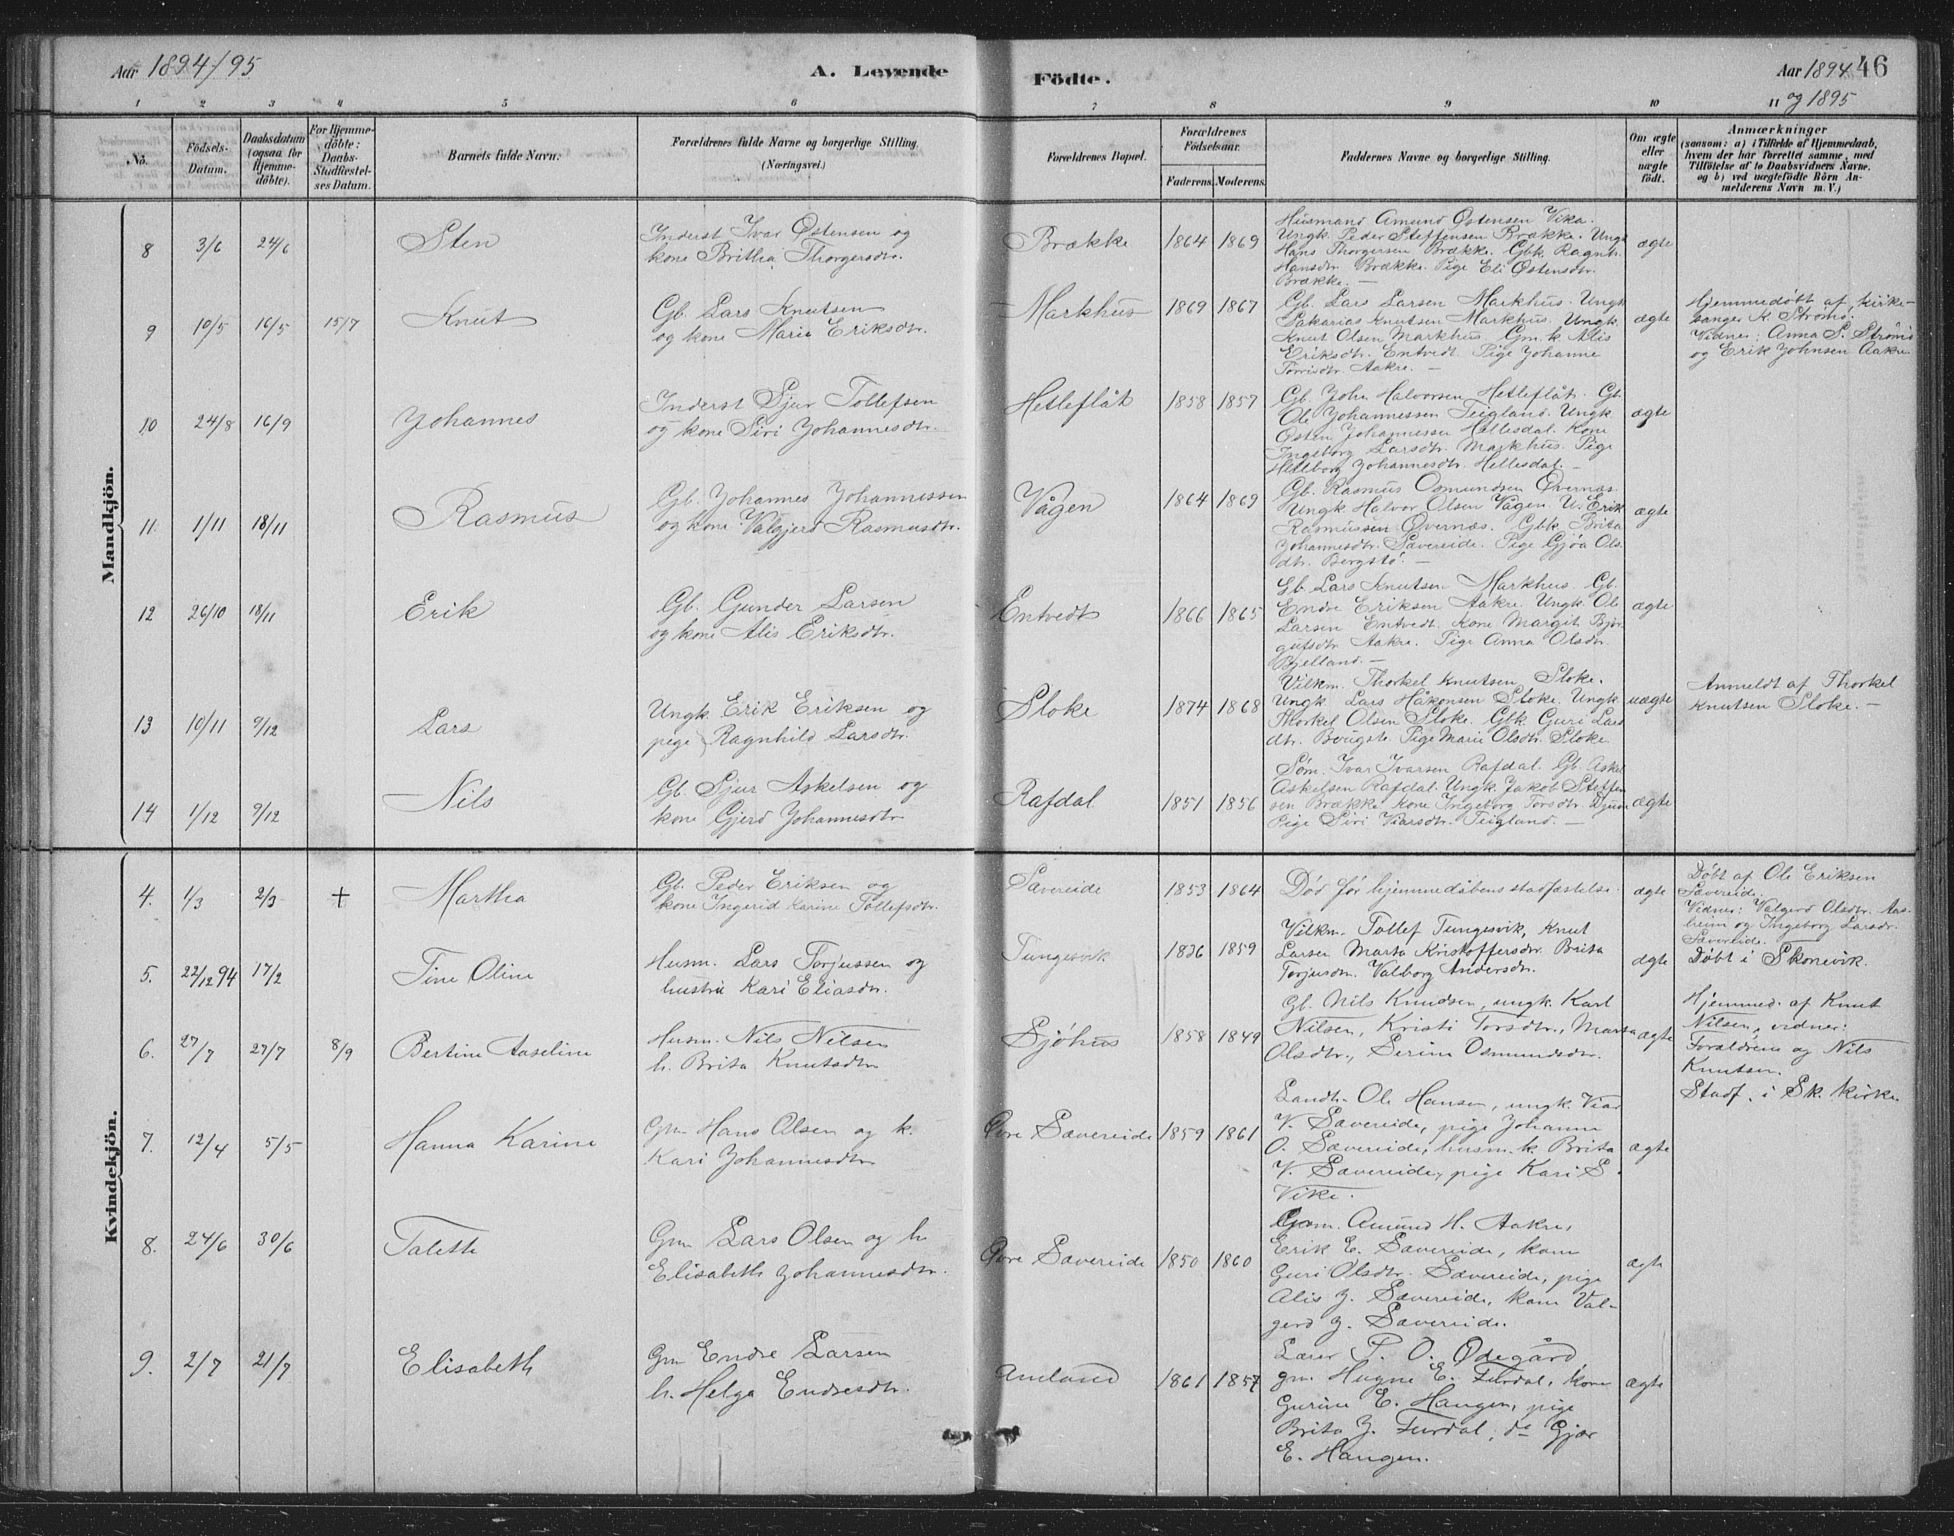 Aar 1894/95
A. Levende
Födte.
Aar 1894 46
og 1895
1 2 3 4 5 6 7 8 9 10 11
No.
Födsels-
Datum.
Daabsdatum
(ogsaa for
Hjemme-
döbte).
For Hjemme-
döbte:
Daabs-
Stadfæstel-
ses Datum.
Barnets fulde Navn.
Forældrenes fulde Navne og borgerlige Stilling
(Næringsvei.)
Forældrenes Bopæl.
Forældrenes
Födselsaar.
Faderens. Moderens.
Faddernes Navne og borgerlige Stilling.
Om ægte
eller
uægte
födt.
Anmærkninger
(saasom: a) i Tilfælde af Hjemmedaab,
hvem der har forrettet samme, med
Tilföielse af to Daabsvidners Navne.
og b) ved uægtefödte Börn An-
melderens Navn m. V.)
Mandkjön.
8 3/6 24/6 Sten
Inderst Ivar Østensen og
kone Britha Thorgersdtr.
Brække 1864 1869
Husmand Amund Østensen Vika.
Ungk. Peder Steffensen Brække. Ungk
Hans Thorgersen Brække. Gbk. Ragnh.
Hansdtr. Brække. Pige Eli Østensdtr.
Brække. —
ægte
9 10/5 16/5 15/7 Knut
Gb. Lars Knutsen
og kone Marie Eriksdtr.
Markhus 1869 1867
Gb. Lars Larsen Markhus. Ungk
Sakarias Knutsen Markhus. Ungk.
Knut Olsen Markhus. Gm. k. Alis
Eriksdtr. Entvedt. Pige Johanne
Torrisdtr. Aakre. —
ægte
Hjemmedøbt af kirke-
sanger K. Strømø.
Vidner: Anna S. Strømø
og Erik Johnsen Aakre
10 24/8 16/9 Johannes
Inderst Sjur Tollefsen
og kone Siri Johannesdtr.
Hetleflåt 1858 1857
Gb. John Halvorsen Hetleflåt. Gb.
Ole Johannessen Teigland. Ungk
Østen Johannessen Hellesdal. Kone
Ingeborg Larsdtr. Markhus. Pige
Helleborg Johannesdtr. Hellesdal. —
ægte
11. 1/11 18/11 Rasmus
Gb. Johannes Johannessen
og kone Valgjerd Rasmusdtr.
Vågen 1864 1869
Gb. Rasmus Osmundsen Øvernæs.
Ungk Halvor Olsen Vågen. U. Erik
Rasmussen Øvernæs. Gbk. Brita
Johannesdtr. Sævereide. Pige Gjøa Ols-
dtr. Bergstø. —
ægte
12 26/10 18/11 Erik
Gb. Gunder Larsen
og kone Alis Eriksdtr.
Entvedt 1866 1865
Gb. Lars Knutsen Markhus. Gb.
Endre Eriksen Aakre. Ungk. Ole
Larsen Entvedt. Kone Margit Bjør-
gufsdtr Aakre. Pige Anna Olsdtr.
Bjelland. —
ægte
13 10/11 9/12 Lars
Ungk. Erik Eriksen og
pige Ragnhild Larsdtr.
Sloke 1874 1868
Vilkm. Thorkel Knutsen Sloke.
Ungk. Lars Håkonsen Sloke. Ungk
Thorkel Olsen Sloke. Gbk. Guri Lars
dtr. Bougste. Pige Marie Olsdtr. Sloke
uægte
Anmeldt af Thorkel
Knutsen Sloke. —
14 1/12 9/12 Nils
Gb. Sjur Askelsen og
kone Gjerd Johannesdtr
Rafdal 1851 1856
Søm. Ivar Ivarsen Rafdal. Gb. Askel
Askelsen Rafdal. Ungk. Jakob Steffen
sen Brække. Kone Ingeborg Torsdtr. Djuv
Pige Siri Viarsdtr. Teigland. —
ægte
Kvindekjön.
4. 1/3 2/3 + Martha
Gb. Peder Eriksen og
kone Ingerid Karine Tollefsdtr.
Sævereide 1853 1864
Død før hjemmedåbens stadfæstelse.
ægte
Døbt af Ole Eriksen
Sævereide.
Vidner: Valgerd Olsdtr. Aas-
heim og Ingeborg Larsdtr.
Sævereide.
5. 22/12 94 17/2 Tine Oline
Husm. Lars Torjussen og
hustru Kari Eliasdtr.
Tungesvik 1836 1859
Vilkm. Tollef Tungesvik, Knut
Larsen Marta Kristoffersdtr. Brita
Torjusdtr. Valborg Andersdtr.
ægte
Døbt i Skonevik.
6. 27/7 27/7 8/9 Bertine Aaseline
Husm. Nils Nilsen
h. Brita Knutsdtr
Sjøhus 1858 1849
Gb. Nils Knudsen, ungk. Karl
Nilsen, Kristi Torsdtr., Marta
Olsdtr., Serine Osmundsdtr.
ægte
Hjemmed. af Knut
Nilsen, vidner:
Forældrene og Nils
Knutsen.
Stadf. i Sk. kirke
7. 12/4 5/5 Hanna Karine
Gm Hans Olsen og k.
Kari Johannesdtr
Øvre Sævereide 1859 1861
Landh. Ole Hansen, ungk. Viar
V. Sævereide, pige Johanne
O. Sævereide, husm. k. Brita
V. Sævereide, pige Kari S.
Vike.
ægte
8. 24/6 30/6 Talette
Gm Lars Olsen og h.
Elisabeth Johannesdtr.
Øvre Sævereide 1850 1860
Gm. Amund H. Aakre,
Erik E. Sævereide, kone
Guri Olsdtr. Sævereide, pige
Alis J. Sævereide, kone Val-
gerd J. Sævereide.
ægte
9. 2/7 21/7 Elisabeth
Gm Endre Larsen
h. Helga Endresdtr.
Amland 1861 1857
Lærer P. O. Ødegård,
gm. Hugne E. Furdal, kone
Gurine E. Haugen, pige
Brita J. Furdal, do Gjør
E. Haugen.
ægte